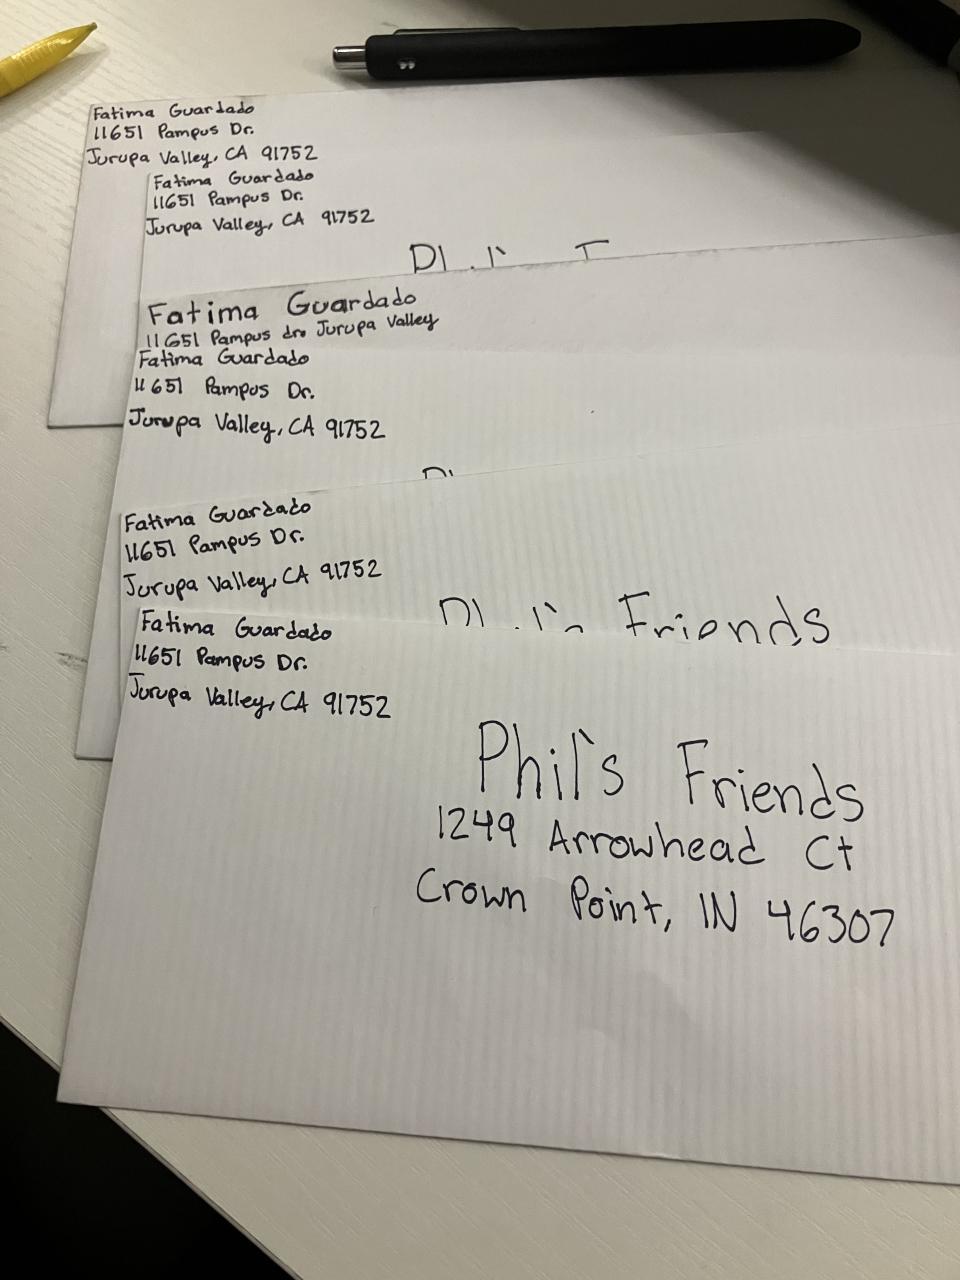 Fatima Guardado
11651 Pampus Dr.
Jurupa Valley, CA 91752
Fatima Guardado
11651 Pampus Dr.
Jurupa Valley, CA 91752
Fatima Guardado
11651 Pampus dr. Jurupa Valley
Fatima Guardado
11651 Pampus Dr.
Jurupa Valley, CA 91752
Fatima Guardado
11651 Pampus Dr.
Jurupa Valley, CA 91752
Friends
Fatima Guardado
11651 Pampus Dr.
Jurupa Valley, CA 91752
Phil's Friends
1249 Arrowhead Ct
Crown Point, IN 46307